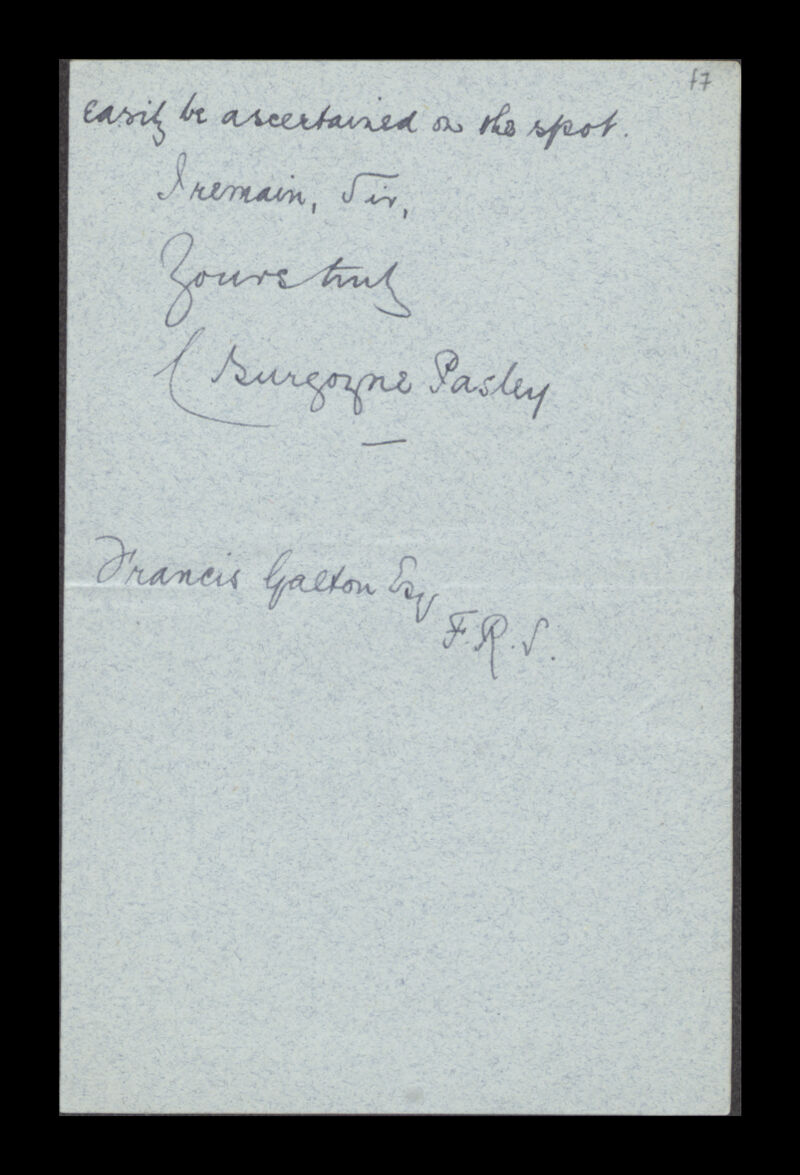 f7
easily be ascertained on the spot.
I remain, Sir,
Yours truly
Burgoyne Pasley
Francis Galton Esq
F.R.S.